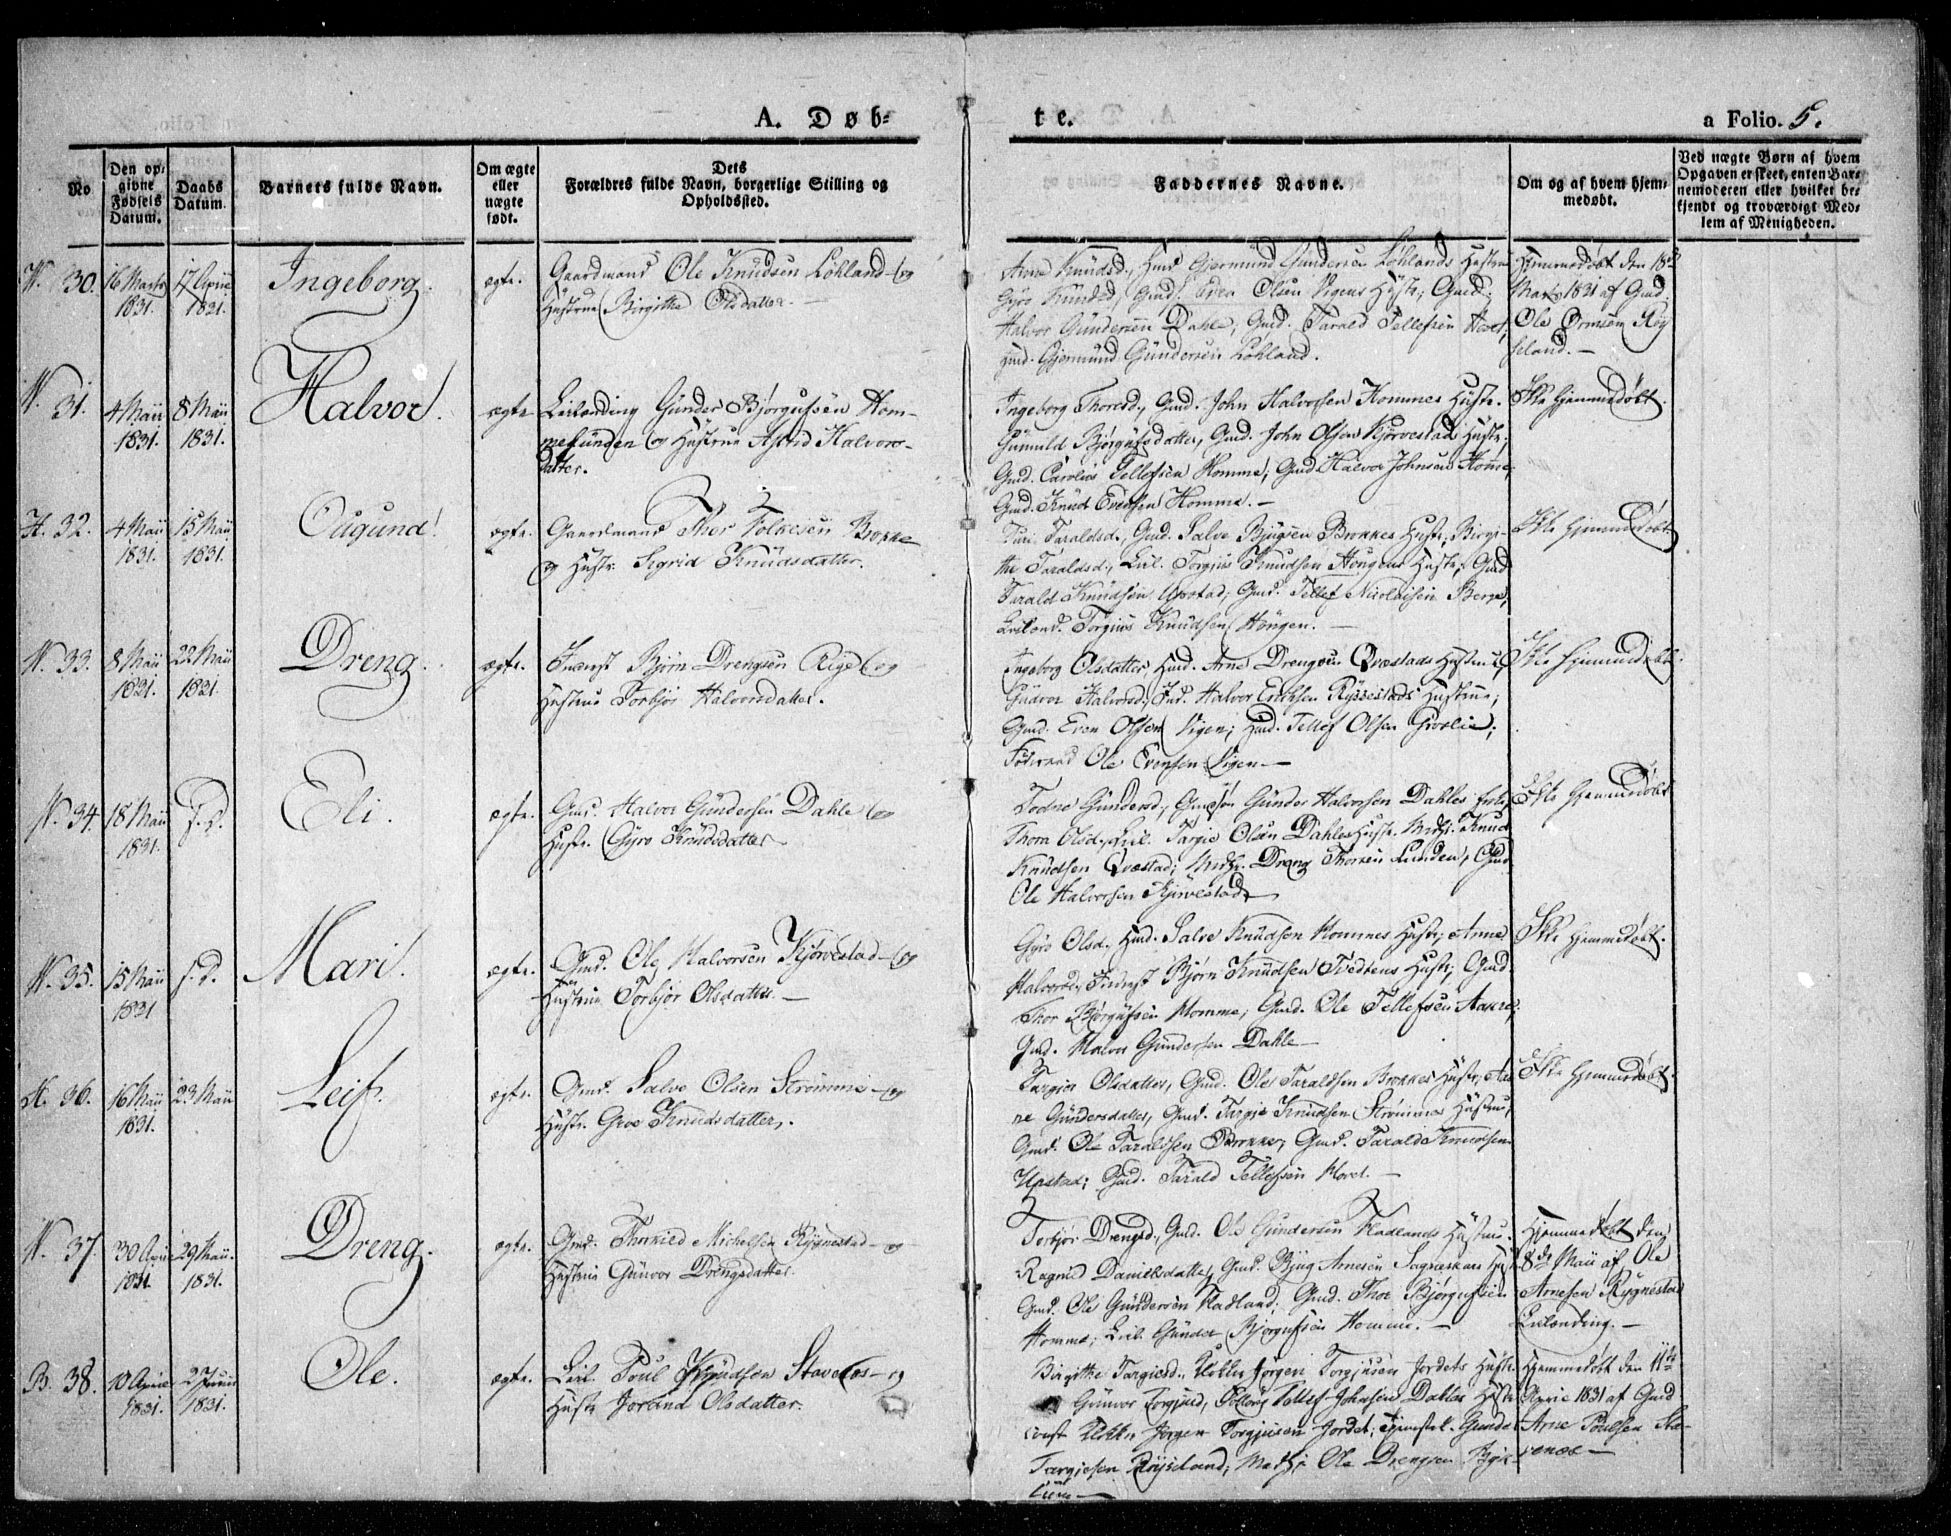 A. Døb=
te.
a Folio. 5.
No
Den op=
givne
Fødsels
Datum.
Daabs
Datum.
Barnets fulde Navn.
Om ægte
eller
uægte
født.
Dets
Forældres fulde Navn, borgerlige Stilling og
Opholdssted.
Faddernes Navne.
Om og af hvem hjem=
medøbt.
Ved uægte Børn af hvem
Opgaven er skeet, enten Bar=
nemoderen eller hvilket be=
kjendt og troværdigt Med=
lem af Menigheden.
30. 16 Marts 17 April Ingeborg. ægte. Gaardmand Ole Knudsen Løhland og
1831. 1831. Hustrue Birgithe Olsdatter. —
Anne Knudsd., Gmd. Gjermund Gundersen Løhlands Hustrue
Gyro Knudsd, Gmd. Even Olsen Vigens Hustr; Gmd.
Halvor Gundersen Dahle, Gmd. Tarald Tellefsen
Gmd. Gjermund Gundersen Løhland.
Hjemmedøbt den 18de
Marts 1831 af Gmd.
Ole Ormsen Røy
seland. —
N. 31. 4 Maii 8 Maii Halvor. ægte Leilænding Gunder Bjørgufsen Hom-
1831. 1831. og Hustrue Halvors-
datter.
Ingeborg Thoresd., Gmd. John Halvorsen Hommes Hustr.
Gunuld Bjørgufsdatter, Gmd. John Olsen Kjørvestads Hustr;
Gmd. Carolius Tellefsen Homme; Gmd Halvor Johnsen Homme;
Gmd. Knud Evensen Homme. —
Ikke hjemmedøbt.
H. 32. 4 Maii 15 Maii Ougund. ægte. Gaardmand Thor Brokke
1831. 1831. og Hustr. Sigrid Knudsdatter.
Turi Taraldsd., Gmd. Salve Bjugsen Brokkes Hustr, Birgi-
the Taraldsd., Leil. Torgius Knudsen Hougens Hustr; Gmd
Tarald Knudsen Upstad; Gmd. Tellef Nicolaisen Berge,
Leilænd. Torgius Knudsen Hougen. —
Ikke hjemmedøbt
N. 33. 8 Maii 22 Maii Dreng. ægte. Inderst Bjørn Drengsen Rige og
1831. 1831. Hustrue Torbjør Halvorsdatter.
Ingeborg Olsdatter, Gmd. Arne Drengsen Qvæstads Hustrue;
Gunvor Halvorsd., Ind. Halvor Erichsen Rysstads Hustrue;
Gmd. Even Olsen Vigen; Gmd. Tellef Olsen
Føderaad Ole Evensen Vigen —
Ikke hjemmedøbt.
N. 34. 18 Maii s. D. Eli. ægte. Gmd. Halvor Gundersen Dahle og
1831. Hustr. Gyro Knudsdatter
Gundersd., Gunder Halvorsen Dahles
Thora Olsd., Leil. Targie Olsen Dahles Hustr. Knud
Knudsen Qvæstad; Dreng Thorsen Lunden, Gmd
Ole Halvorsen Kjørvestad.
Ikke hjemmedøbt
N. 35. 15 Maii s. D. Mari. ægte. Gmd. Ole Halvorsen Kjørvestad — og
1831 Hustrue Torbjør Olsdatter. —
Gyro Olsd., Gmd. Salve Knudsen Hommes Hustr; Anne
Halvorsd. Inderst Bjørn Knudsen Tvedtens Hustr; Gmd.
Thor Bjørgufsen Homme, Gmd. Ole Tellefsen Aakre,
Gmd. Halvor Gundersen Dahle —
Ikke hjemmedøbt.
H. 36. 16 Maii 23 Maii Leif. ægte. Gmd. Salve Olsen Strømme — og
1831. Hustr. Groe Knudsdatter.
Targier Olsdatter, Gmd. Ole Taraldsen Brokkes Hustr; An-
ne Gundersdatter, Gmd. Targie Knudsen Strømmes Hustrue,
Gmd. Ole Taraldsen Brokke; Gmd. Tarald Knudsen
Upstad; Gmd. Tarald Tellefsen Hovet. —
Ikke hjemmedøbt.
N. 37. 30 April 29 Maii Dreng. ægte. Gmd. Thorkild Michelsen Rygnestad — og
1831. 1831. Hustrue Gunvor Drengsdatter.
Torbjør Drengsd., Gmd. Ole Gundersen Fladlands Hustrue.
Ragnild Danielsdatter, Gmd. Bjug Arnesen
Gmd. Ole Gundersen Fladland; Gmd. Thor Bjørgufsen
Homme; Leil. Gunder Bjørgufsen Homme. —
Hjemmedøbt den
8de Maii af Ole
Arnesen Rygnestad
Leilænding. —
B. 38. 10 April 2 Junii Ole. ægte. Leil. Poul Knudsen Stavenes — og
1831. 1831. Hustr Jorand Olsdatter.
Birgithe Targiesd., Jørgen Torgjusen Jordets Hustr.
Gunvor Torgjusd, Tellef Johnsen Dahles Hustr
Jørgen Torgjusen Jordet; Gunder
Targiesen Røyseland; Ole Drengsen
Hjemmedøbt den 11te
April 1831 af Gmd.
Arne Poulsen Sta-
venæs —